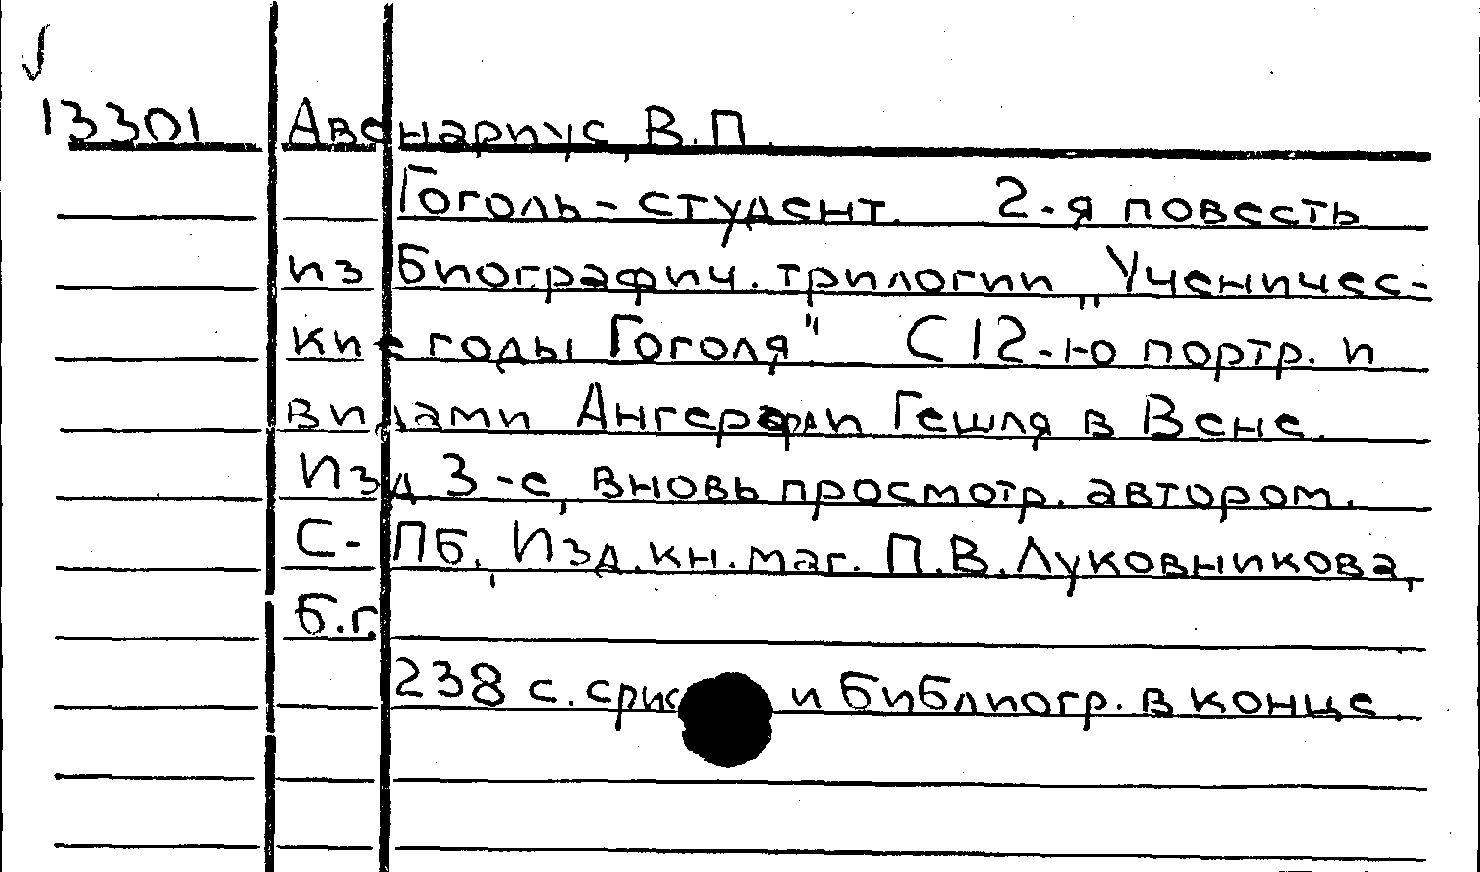 13301 Авенариус, В.П.
Гоголь - студент. 2-я повесть
из биографич. трилогии „Ученичес-
кие годы Гоголя" С 12-ю портр. и
видами Ангерера и Гешля в Вене.
Изд 3-е, вновь просмотр. автором.
С-ПБ., Изд. кн. маг. П.В. Луковникова,
б.г.
238 с. с рис и библиогр. в конце